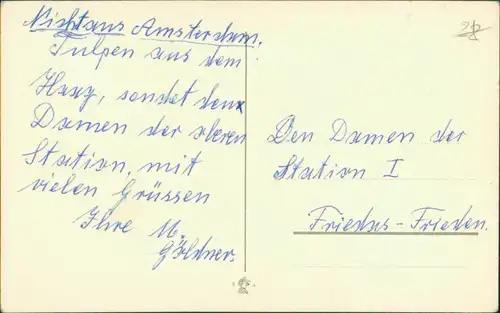 Nicht aus Amsterdam.
Tulpen aus dem
Haag, sendet den
Damen der oberen
Station, mit
vielen Grüssen
Ihre M.
Göldner.
Den Damen der
Station I
Friedas-Frieden.